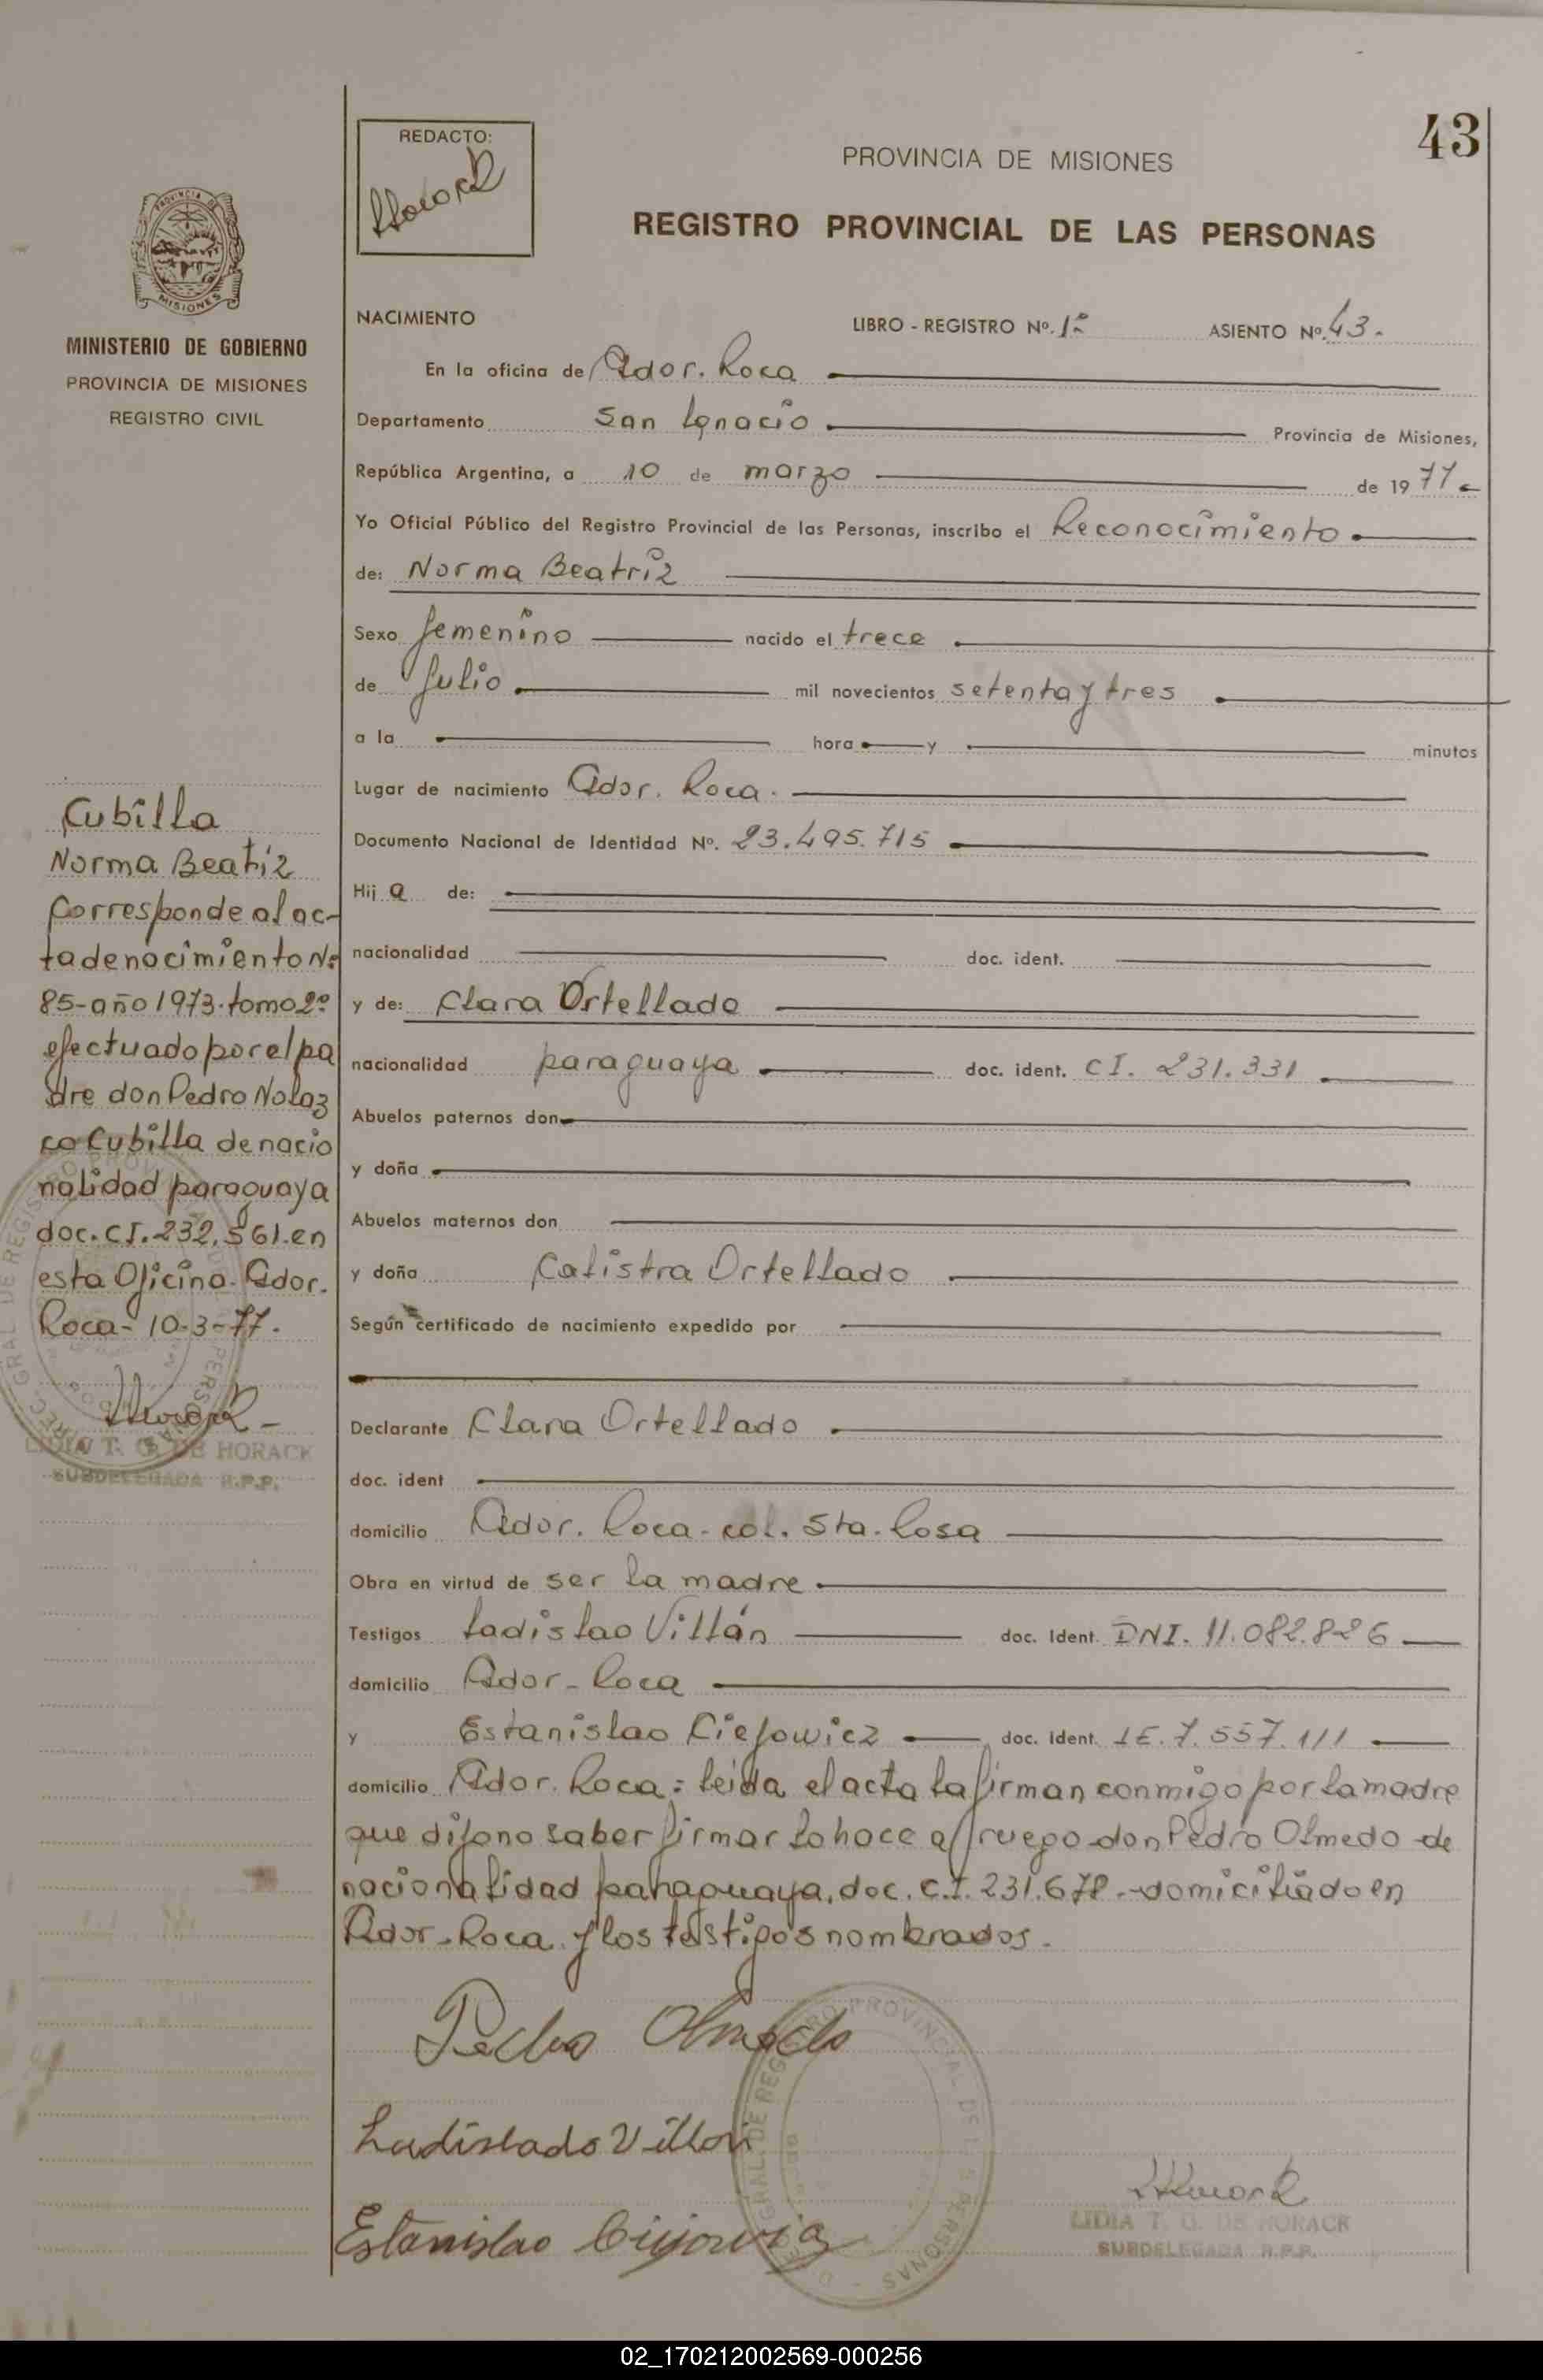 43
REDACTO:
PROVINCIA DE MISIONES
REGISTRO PROVINCIAL DE LAS PERSONAS
PROVINCIA DE
MISIONES
MINISTERIO DE GOBIERNO
PROVINCIA DE MISIONES
REGISTRO CIVIL
NACIMIENTO LIBRO - REGISTRO Nº. 1º ASIENTO Nº. 43.
En la oficina de Gdor. Roca
Departamento San Ignacio Provincia de Misiones,
República Argentina, a 10 de marzo de 19 77
Yo Oficial Público del Registro Provincial de las Personas, inscribo el Reconocimiento
de: Norma Beatriz
Sexo femenino nacido el trece
de Julio mil novecientos setenta y tres
a la hora y minutos
Lugar de nacimiento Gdor. Roca.
Documento Nacional de Identidad Nº. 23.495.715
Hij a de:
nacionalidad doc. ident.
y de: Clara Ortellado
nacionalidad paraguaya doc. ident. CI. 231.331
Abuelos paternos don
y doña
Abuelos maternos don
y doña Calistra Ortellado
Según certificado de nacimiento expedido por
Declarante Clara Ortellado
doc. ident
domicilio Gdor. Roca - col. Sta. Rosa
Obra en virtud de ser la madre
Testigos Ladislao Villán doc. Ident. DNI. 11.082.826
domicilio Gdor - Roca
y Estanislao doc. Ident. LE. 7.557.111
domicilio Gdor. Roca = leida el acta la firman conmigo por la madre
que dijo no saber firmar lo hace a ruego don Pedro Olmedo de
nacionalidad paraguaya, doc. C.I. 231.678 - domiciliado en
Gdor - Roca y los testigos nombrados.
Cubilla
Norma Beatriz
Corresponde al ac-
ta de nacimiento Nº
85 - año 1973 - tomo 2º
efectuado por el pa
dre don Pedro Nolaz
co Cubilla de nacio
nalidad paraguaya
doc. CI. 232.561 en
esta Oficina - Gdor.
Roca - 10-3-77.
LIDIA T. G. DE HORACK
SUBDELEGADA R.P.P.
Pedro Olmedo
Ladislado Villan
Estanislao
LIDIA T. G. DE HORACK
SUBDELEGADA R.P.P.
02_170212002569-000256